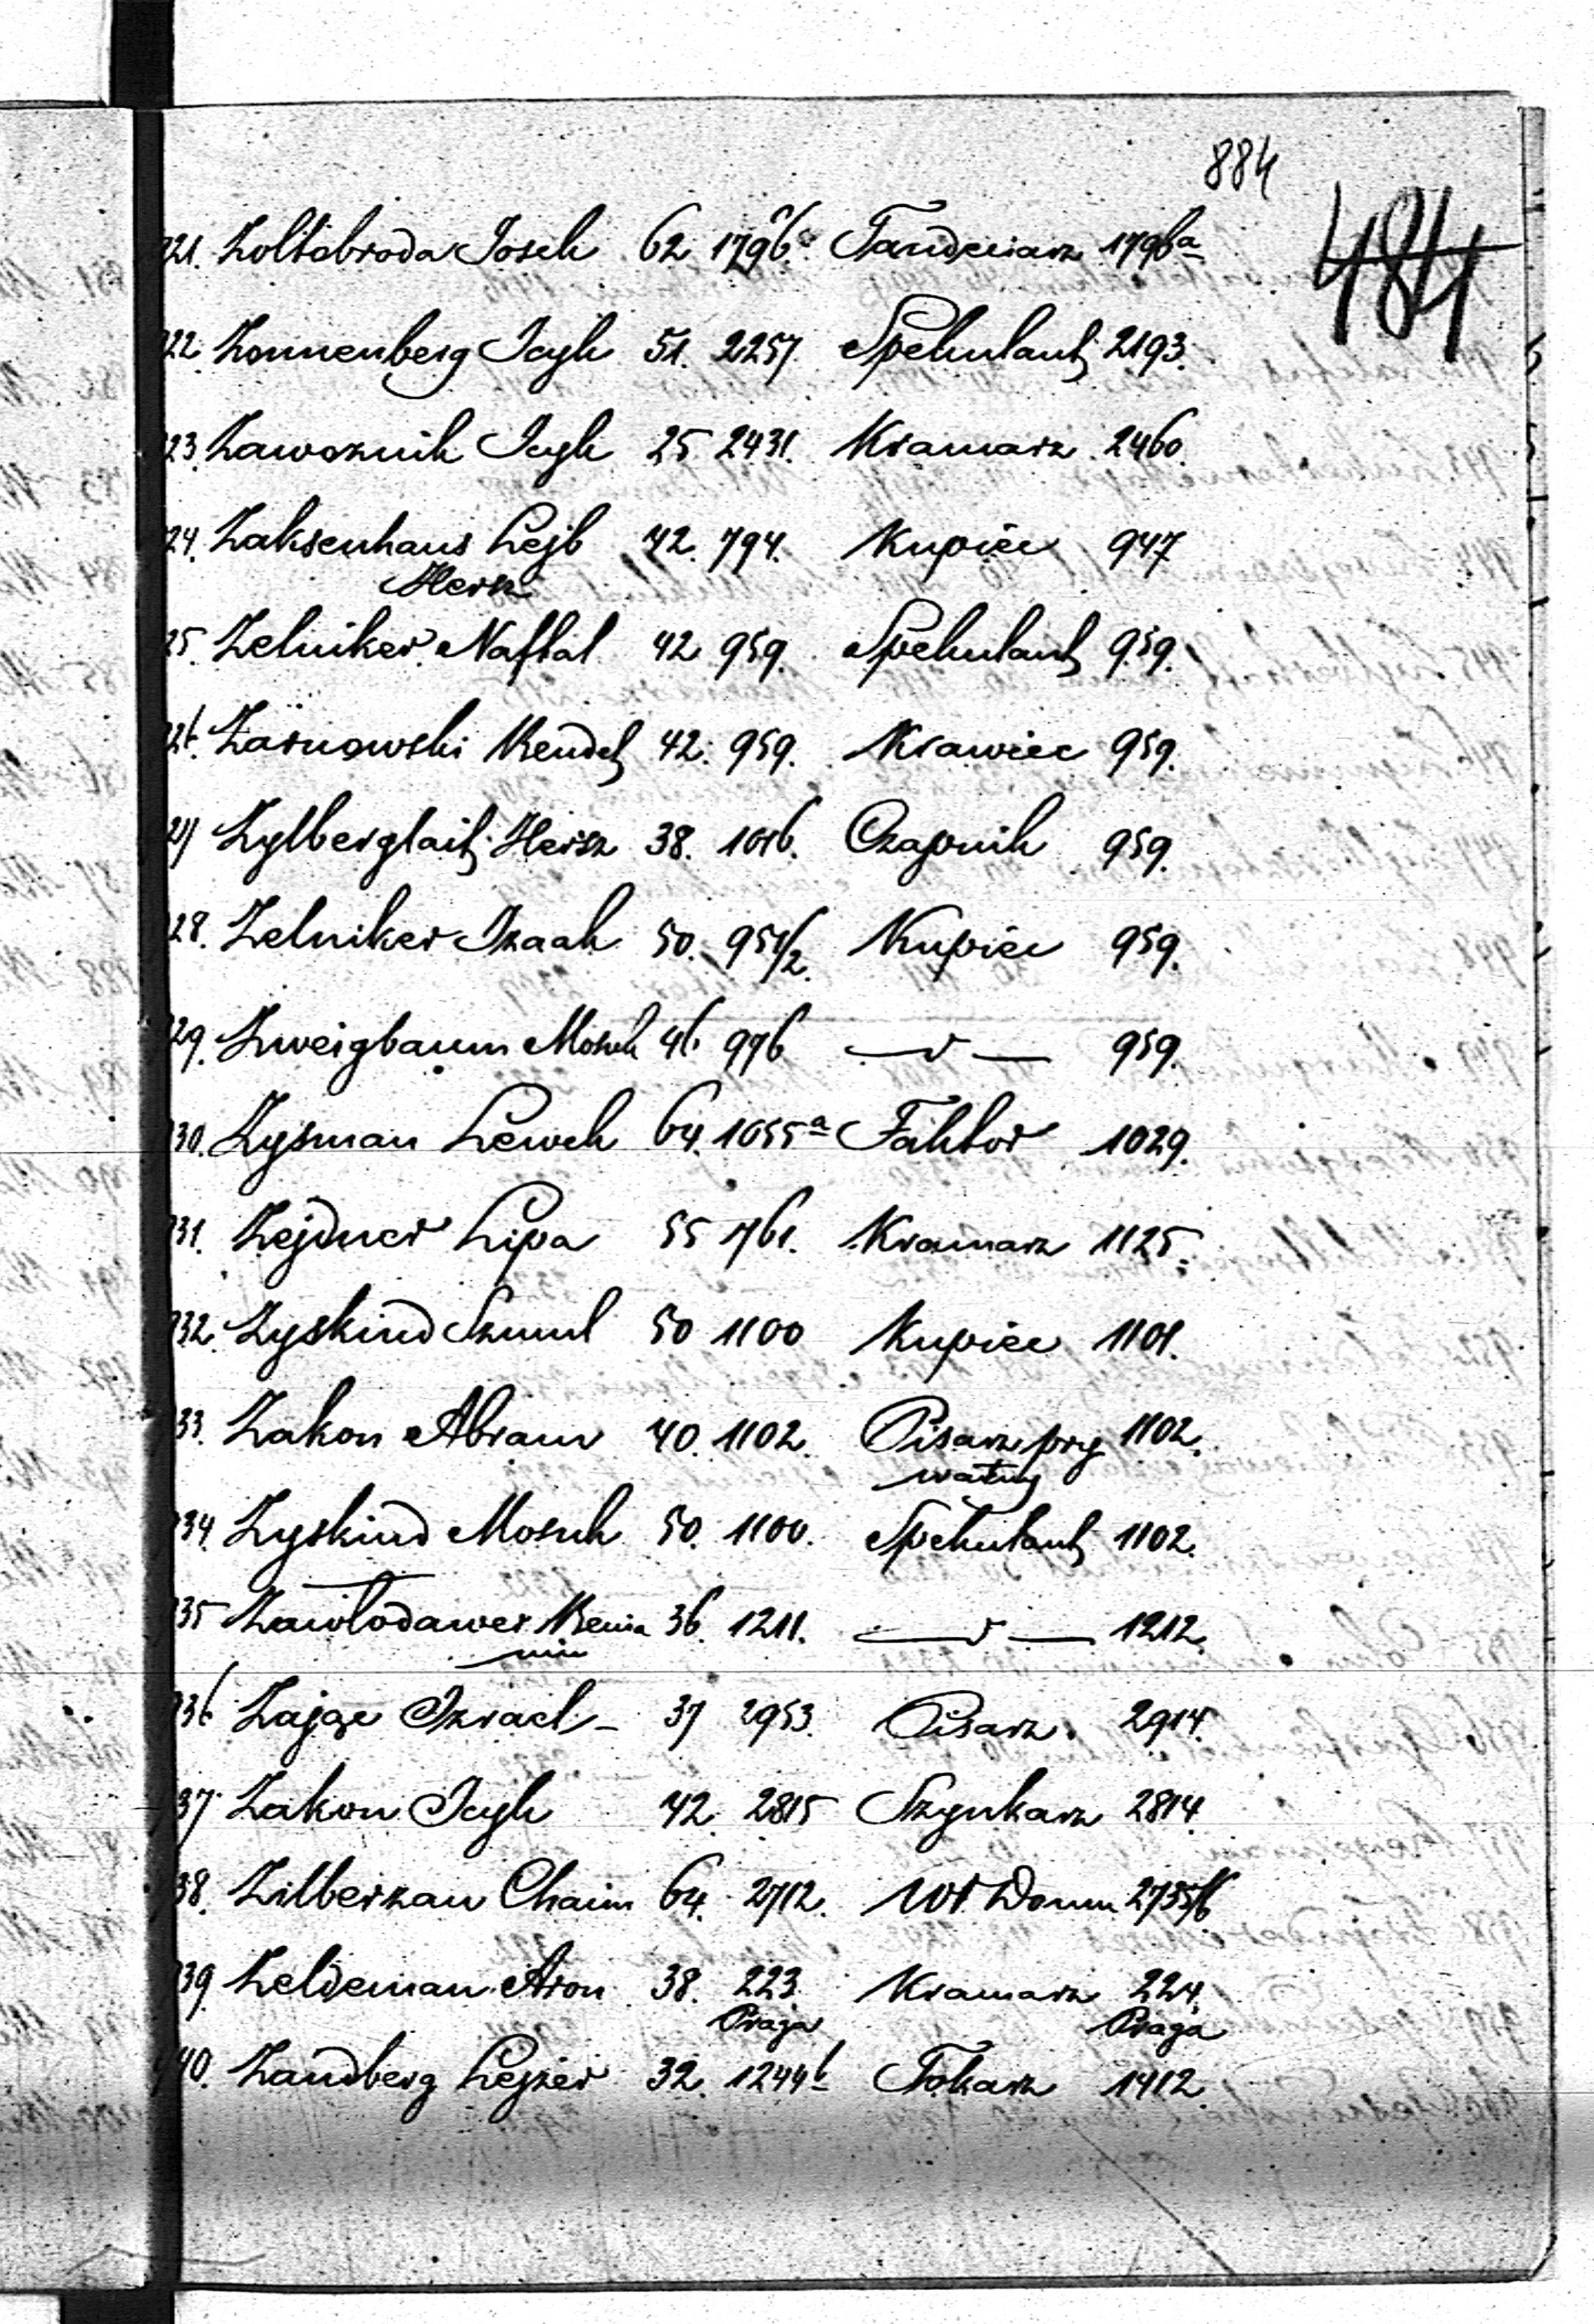 884
484
921. Zoltobroda Josek 62 1796b. Tandeciarz 1796a
922. Zonnenberg Icyk 51. 2257. Spekulant 2193.
923. Zawoznik Icyk 25 2431. Kramarz 2460.
924. Zaksenhaus Lejb 42. 794. Kupiec 947
Hersz
925. Zelniker Naftal 42 959. Spekulant 959.
926. Zarnowski Mendel 42. 959. Krawiec 959.
927 Zylberglait Hersz 38. 1016. Czapnik 959.
928. Zelniker Izaak 50. 951/2. Kupiec 959.
929. Zweigbaum Mosek 46 976 —v— 959.
930. Zysman Lewek 64. 1055a Faktor 1029.
931. Zejdner Lipa 55 1761. Kramarz 1125.
932. Zyskind Szmul 50 1100 Kupiec 1101.
933. Zakon Abram 40. 1102. Pisarz pry 1102.
watny
934. Zyskind Mosek 50. 1100. Spekulant 1102.
935 Zawlodawer Benia 36. 1211. —v— 1212.
min
936 Zajge Izrael - 37 2953. Pisarz. 2914.
937. Zakon Icyk 42. 2815 Szynkarz 2814.
938. Zilberzan Chaim 64. 2712. Wł. Domu 2735/6
939. Zeldeman Aron 38. 223. Kramarz 224.
Praga Praga
940. Zandberg Lejzer 32. 1244b Tokarz 1412.